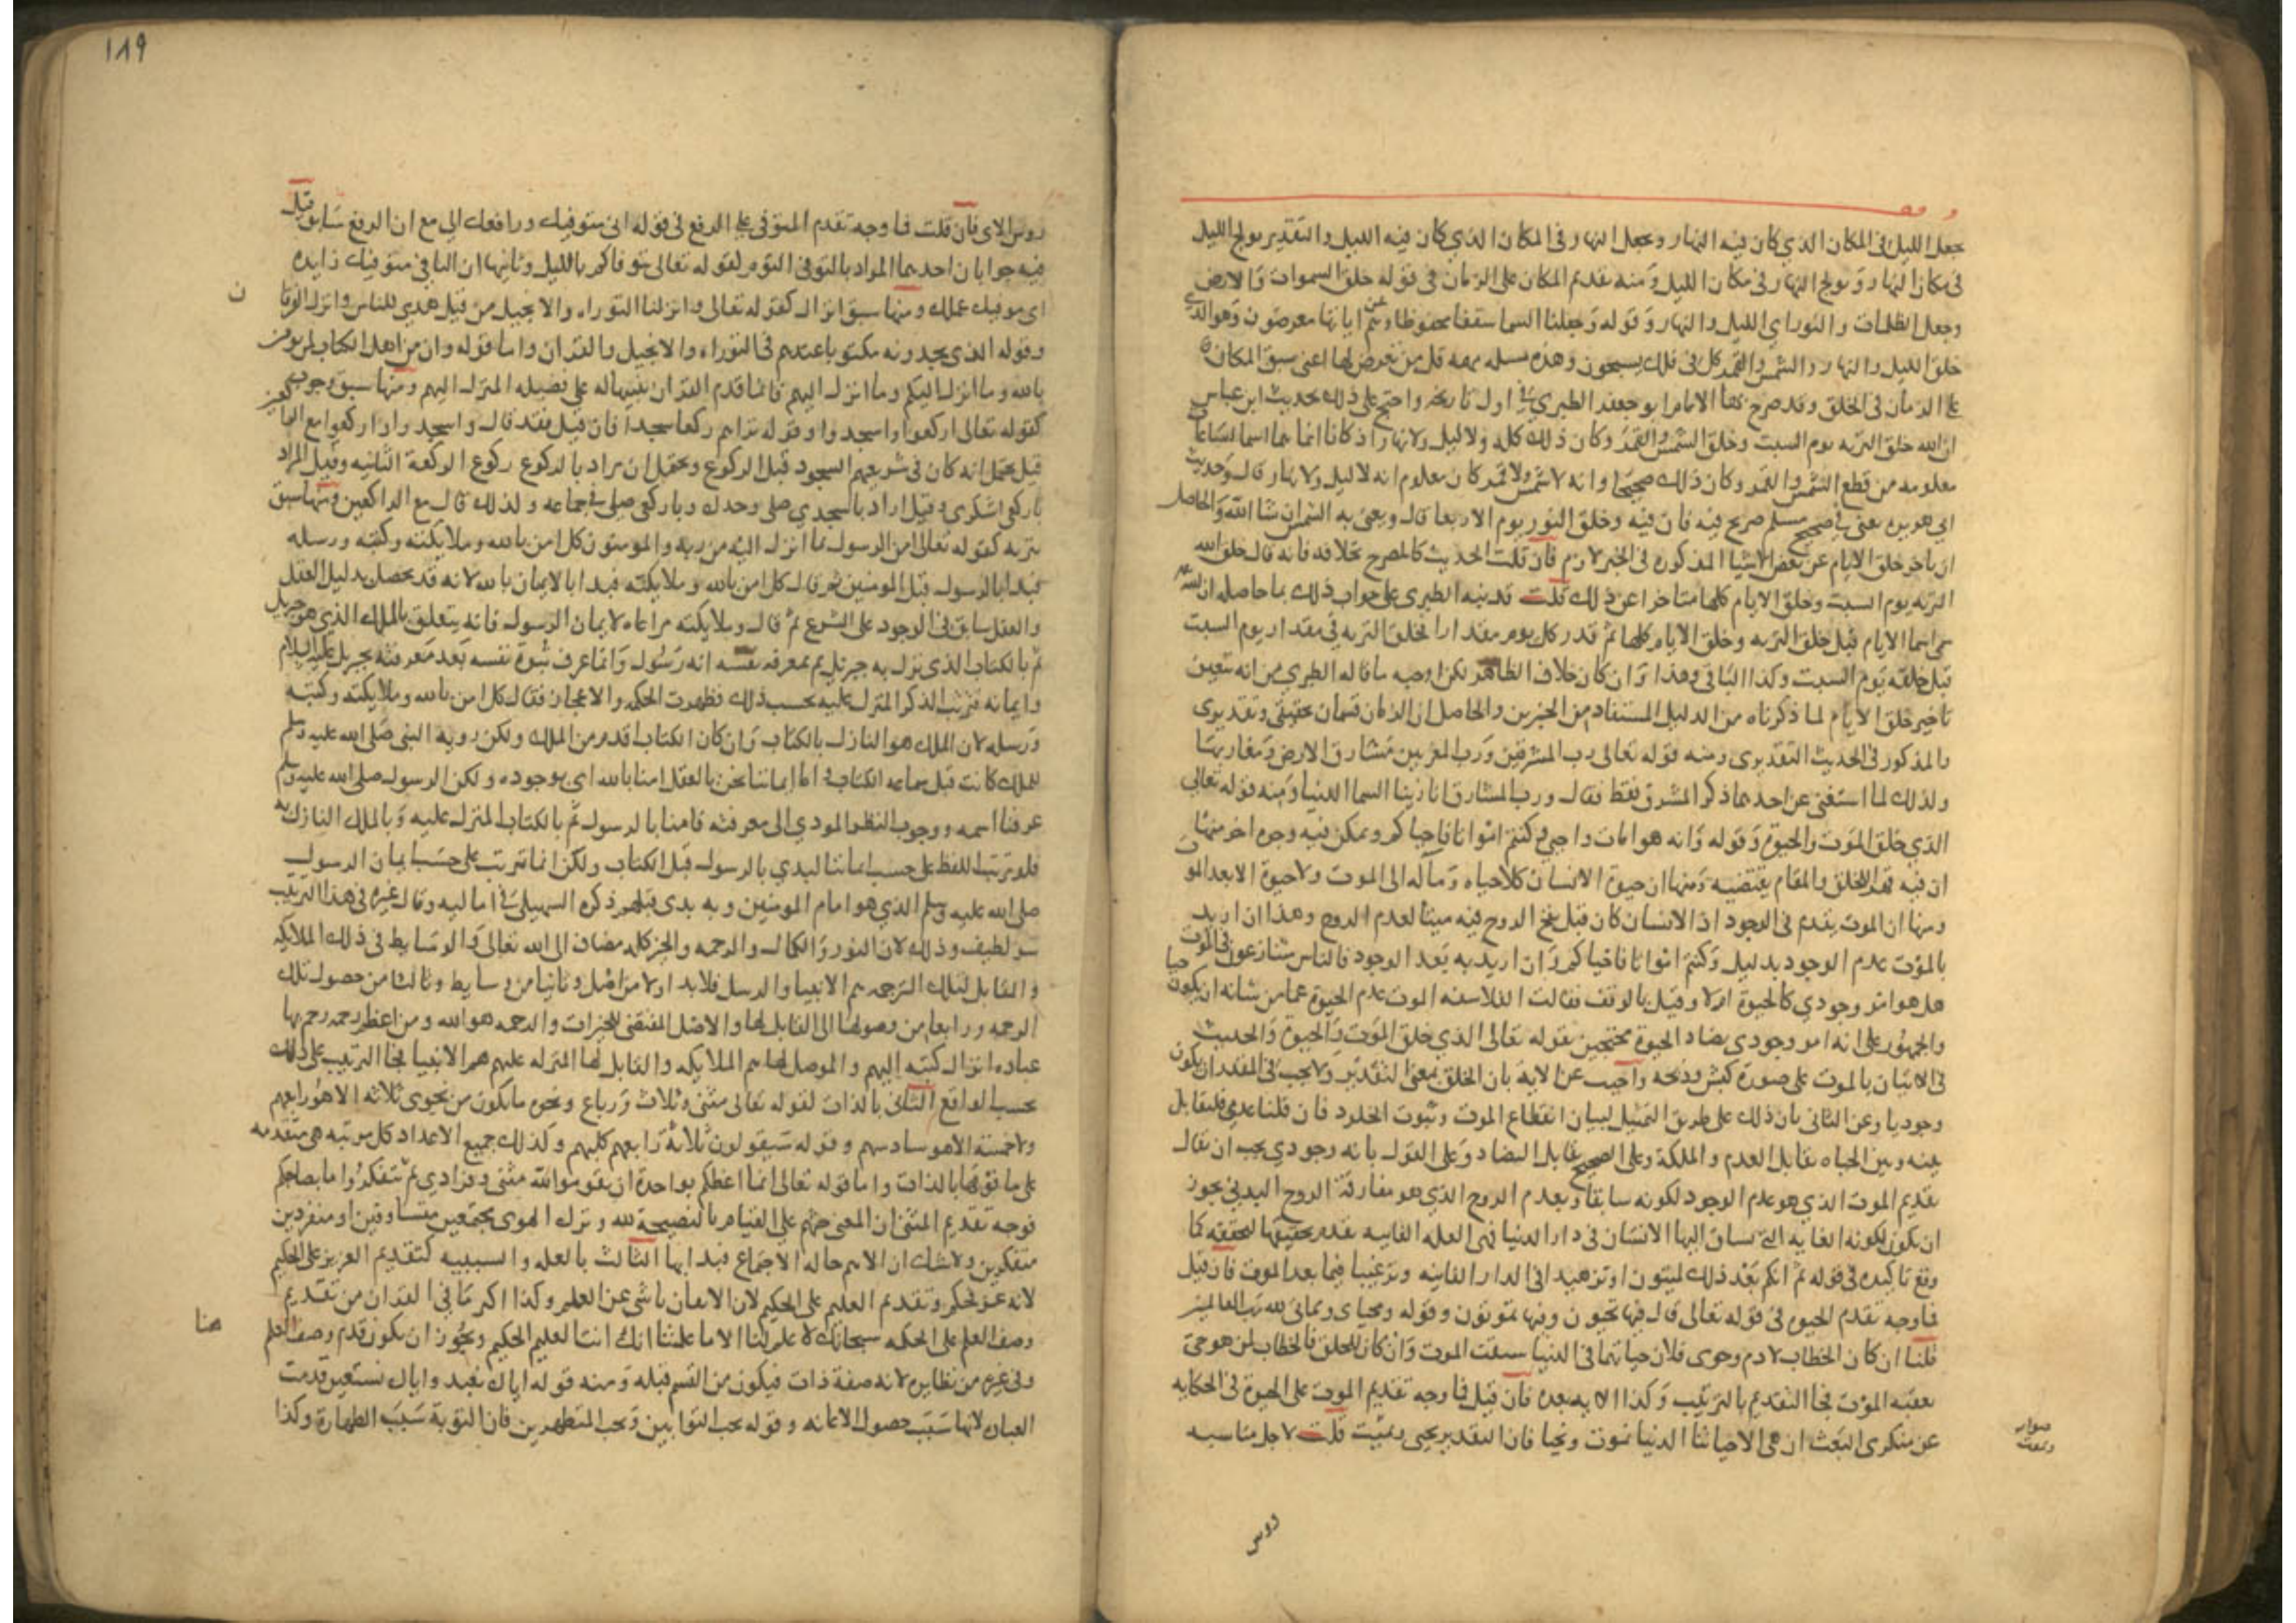 يجعل الليل في المكان الذي كان فيه النهار ويجعل النهار في المكان الذي كان فيه الليل والتقدير يولج الليل
في مكان النهار ويولج النهار في مكان الليل ومنه تقديم المكان على الزمان في قوله خلق السموات والارض
وجعل الظلمات والنور اي الليل والنهار وقوله وجعلنا السما سقفا محفوظا وهم عن اياتها معرضون وهو الذي
خلق الليل والنهار والشمس والقمر كل في فلك يسبحون وهذه مسله مهمه قل من تعرض لها اعني سبق المكان
على الزمان في الخلق وقد صرح بها الامام ابو جعفر الطبري في اول تاريخه واحتج على ذلك بحديث ابن عباس
ان الله خلق التربه يوم السبت وخلق الشمس والقمر وكان ذلك كله ولا ليل ولا نهار اذ كانا انما هما اسما لساعات
معلومه من قطع الشمس والقمر وكان ذلك صحيحا وانه لا شمس ولا قمر كان معلوم انه لا ليل ولا نهار قال وحديث
ابي هريره يعني في صحيح مسلم صريح فيه فان فيه وخلق النور يوم الاربعا قال ويعني به الشمس ان شا الله والحاصل
ان تاخر خلق الايام عن بعض الاشيا المذكوره في الخبر لازم فان قلت الحديث كالمصرح بخلافه فانه قال خلق الله
التربه يوم السبت وخلق الايام كلها متاخرا عن ذلك قلت قد نبه الطبري على جواب ذلك بما حاصله ان الله
سمى اسما الايام قبل خلق التربه وخلق الايام كلها ثم قدر كل يوم مقدارا فخلق التربه في مقدار يوم السبت
قبل خلقه يوم السبت وكذا الباقي وهذا وان كان خلاف الظاهر لكن اوجبه ما قاله الطبري من انه يتعين
تاخير خلق الايام لما ذكرناه من الدليل المستفاد من الخبرين والحاصل ان الزمان قسمان حقيقي وتقديري
والمذكور في الحديث التقديري ومنه قوله تعالى رب المشرقين ورب المغربين مشارق الارض ومغاربها
ولذلك لما استغنى عن احدهما ذكر المشرق فقط فقال ورب المشارق انا زينا السما الدنيا ومنه قوله تعالى
الذي خلق الموت والحيوة وقوله وانه هو امات واحيي وكنتم امواتا فاحياكم ويمكن فيه وجوه اخر منها
ان فيه قهر الخلق والمقام يقتضيه ومنها ان حيوة الانسان كلا حياه ومآله الى الموت ولا حيوة الا بعد الموت
ومنها ان الموت يقدم في الوجود اذ الانسان كان قبل نفخ الروح فيه ميتا لعدم الروح وهذا ان اريد
بالموت عدم الوجود بدليل وكنتم امواتا فاحياكم وان اريد به بعد الوجود فالناس متنازعون في الموت
هل هو امر وجودي كالحيوة اولا وقيل بالوقف فقالت الفلاسفه الموت عدم الحيوة عما من شانه ان يكون حيا
والجمهور على انه امر وجودي يضاد الحيوة محتجين بقوله تعالى الذي خلق الموت والحيوة والحديث
في الاتيان بالموت على صورة كبش وذبحه واجيب عن الايه بان الخلق بمعنى التقدير ولا يجب في المقدر ان يكون
وجوديا وعن الثاني بان ذلك على طريق التمثيل لبيان انقطاع الموت وثبوت الخلود فان قلنا عدمي فلتقابل
بينه وبين الحياه تقابل العدم والملكة وعلى الصحيح تقابل التضاد وعلى القول بانه وجودي يجب ان يقال
تقديم الموت الذي هو عدم الوجود لكونه سابقا وبعدم الروح الذي هو مفارقة الروح البدن يجوز
ان يكون لكونه الغايه التي يساق اليها الانسان في دار الدنيا فهى العله الغاييه بعدم تحقيقها لتحققه كما
وقع تاكيده في قوله ثم انكم بعد ذلك لميتون او تزهيدا في الدار الفانيه وترغيبا فيما بعد الموت فان قيل
فما وجه تقدم الحيوه في قوله تعالى قال فيها تحيون وفيها تموتون وقوله ومحياي ومماتي لله رب العالمين
قلنا ان كان الخطاب لادم وحوى فلان حياتهما في الدنيا سبقت الموت وان كان للخلق فالخطاب لمن هو حي
يعقبه الموت فجا التقديم بالترتيب وكذا الايه بعده فان قيل فما وجه تقديم الموت على الحيوة في الحكايه
عن منكري البعث ان هي الا حياتنا الدنيا نموت ونحيا فان التقدير نحيى ونميت قلت لاجل مناسبه
روس
١٨٩
روس الاى فان قلت فما وجه تقدم المتوفي على الرفع في قوله اني متوفيك ورافعك الي مع ان الرفع سابق قيل
فيه جوابان احدهما المراد بالتوفي النوم لقوله تعالى يتوفاكم بالليل وثانيها ان التا في متوفيك زايده
اي موفيك عملك ومنها سبق انزال كقوله تعالى وانزلنا التوراه والانجيل من قبل هدي للناس وانزل الفرقان
وقوله الذي يجدونه مكتوبا عندهم في التوراه والانجيل والقران واما قوله وان من اهل الكتاب لمن يومن
بالله وما انزل اليكم وما انزل اليهم فانما قدم القران تنبيها له على فضيله المنزل اليهم ومنها سبق وجوب
كقوله تعالى اركعوا واسجدوا وقوله تراهم ركعا سجدا فان قيل فقد قال واسجدي واركعي مع الراكعين
قيل يحتمل انه كان في شريعتهم السجود قبل الركوع ويحتمل ان يراد بالركوع ركوع الركعة الثانيه وقيل المراد
باركعي اشكري وقيل اراد باسجدي صلي وحدك وباركعي صلي في جماعه ولذلك قال مع الراكعين ومنها سبق
تنزيه كقوله تعالى امن الرسول بما انزل اليه من ربه والمومنون كل امن بالله وملايكته وكتبه ورسله
فبدا بالرسول قبل المومنين ثم قال كل امن بالله وملايكته فبدا بالايمان بالله لانه قد يحصل بدليل العقل
والعقل سابق في الوجود على الشرع ثم قال وملايكته مراعاه لايمان الرسول فانه يتعلق بالملك الذي هو جبريل
ثم بالكتاب الذي نزل به جبريل ثم بمعرفه نفسه انه رسول وانما عرف نبوة نفسه بعد معرفته بجبريل عليه السلام
وايمانه فترتب الذكر المنزل عليه بحسب ذلك فظهرت الحكمه والاعجاز فقال كل امن بالله وملايكته وكتبه
ورسله لان الملك هو النازل بالكتاب وان كان الكتاب اقدم من الملك ولكن رويه النبي صلى الله عليه وسلم
للملك كانت قبل سماعه الكتاب اما ايماننا نحن بالعقل امنا بالله اي بوجوده ولكن الرسول صلى الله عليه وسلم
عرفنا اسمه ووجوب النظر المودي الى معرفته فامنا بالرسول ثم بالكتاب المنزل عليه وبالملك النازل به
فلو ترتب اللفظ على حسب ايماننا لبدي بالرسول قبل الكتاب ولكن انما ترتب على حسب ايمان الرسول
صلى الله عليه وسلم الذي هو امام المومنين وبه بدى قبلهم ذكره السهيلي في اماليه وقال غيره في هذا الترتيب
سر لطيف وذلك لان النور والكمال والرحمه والخير كله مضاف الى الله تعالى والوسايط في ذلك الملايكه
والقابل لتلك الرحمه هم الانبيا والرسل فلا بد اولا من اصل وثانيا من وسايط وثالثا من حصول تلك
الرحمه ورابعا من وصولها الى القابل لها والاصل المقتضي للخيرات والرحمه هو الله ومن اعظم رحمه رحم بها
عباده انزال كتبه اليهم والموصل لها هم الملايكه والقابل لها المنزله عليهم هم الانبيا فجا الترتيب على ذلك
بحسب الواقع الثاني بالذات لقوله تعالى مثنى وثلاث ورباع ونحوه ما يكون من نجوى ثلاثه الا هو رابعهم
ولا خمسة الا هو سادسهم وقوله سيقولون ثلاثة رابعهم كلبهم وكذلك جميع الاعداد كل مرتبه هي متقدمه
على ما فوقها بالذات واما قوله تعالى انما اعظكم بواحدة ان تقوموا لله مثنى وفرادي ثم تتفكروا ما بصاحبكم
فوجه تقديم المثنى ان المعنى حثهم على القيام بالنصيحة لله وترك الهوى مجتمعين متساوقين او منفردين
متفكرين ولا شك ان الاهم حاله الاجتماع فبدا بها الثالث بالعله والسببيه كتقديم العزيز على الحكيم
لانه عز فحكم وتقديم العليم على الحكيم لان الاتقان ناشى عن العلم وكذا اكثر ما في القران من تقديم
وصف العلم على الحكمه سبحانك لا علم لنا الا ما علمتنا انك انت العليم الحكيم ويجوز ان يكون قدم وصف العلم
هنا
وفي غيره من نظايره لانه صفة ذات فيكون من القسم قبله ومنه قوله اياك نعبد واياك نستعين قدمت
العباده لانها سبب حصول الاعانه وقوله يحب التوابين ويحب المتطهرين فان التوبة سبب الطهارة وكذا